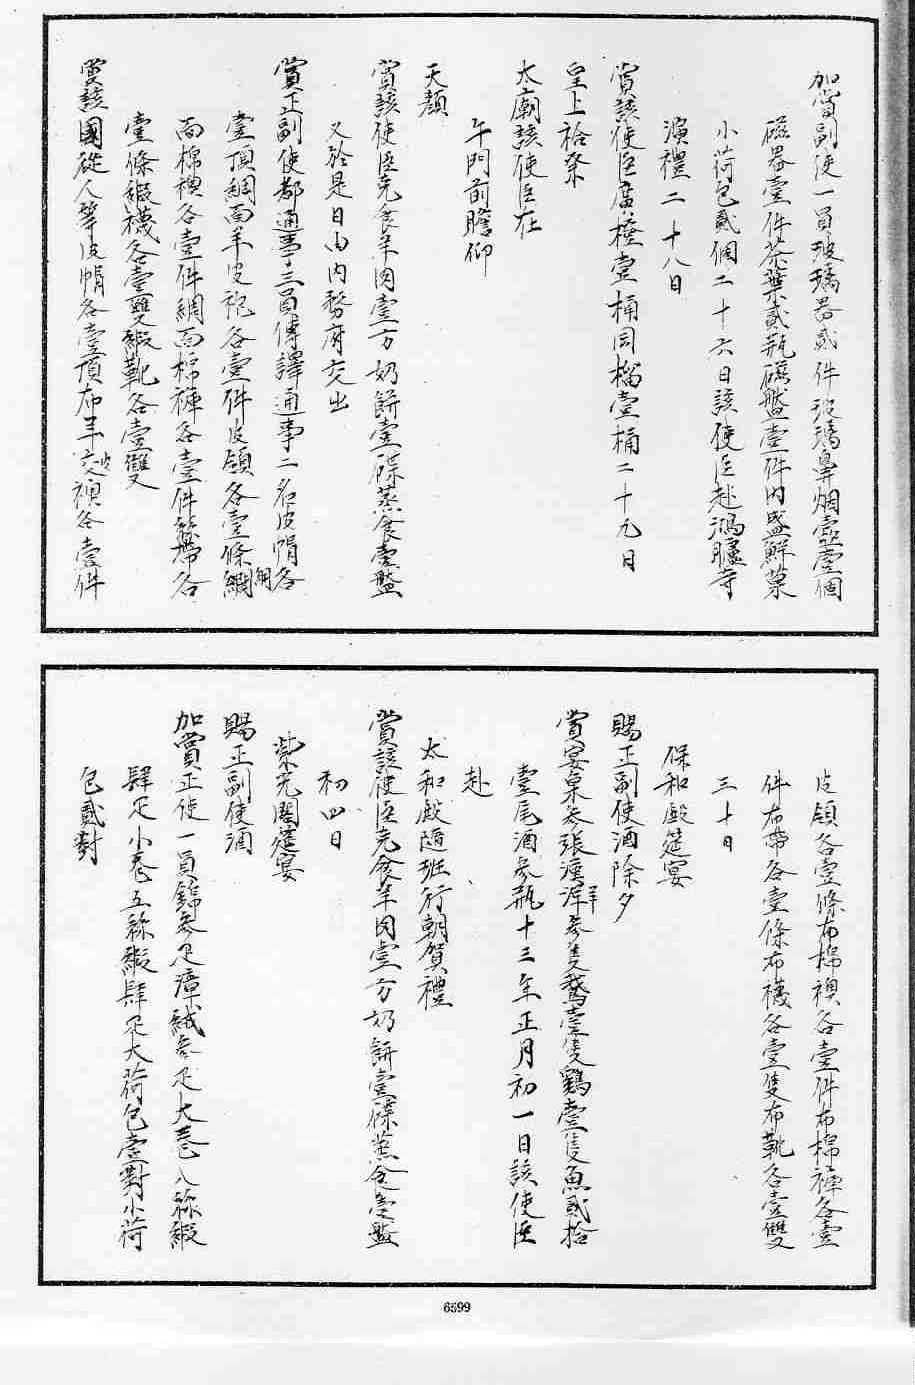 加賞副使一員玻璃器貳件玻璃鼻烟壺壹個
磁器壹件茶葉貳瓶磁盤壹件內盛鮮菓
小荷包貳個二十六日該使臣赴鴻臚寺
演禮二十八日
賞該使臣廣橙壹桶回榴壹桶二十九日
皇上祫祭
太廟該使臣在
午門前瞻仰
天顏
賞該使臣克食羊肉壹方奶餅壹碟蒸食壹盤
又於是日由內務府交出
賞正副使都通事三員傳譯通事二名皮帽各
壹頂綢面羊皮袍各壹件皮領各壹條綢
面棉襖各壹件綢面棉褲各壹件絲帶各
壹條緞襪各壹雙緞靴各壹雙
賞該國從人等皮帽各壹頂布羊皮襖各壹件
皮領各壹條布棉襖各壹件布棉褲各壹
件布帶各壹條布襪各壹隻布靴各壹雙
三十日
保和殿筵宴
賜正副使酒除夕
賞宴菓叁張漢羊叁隻鵝壹隻鷄壹隻魚貳拾
壹尾酒叁瓶十三年正月初一日該使臣
赴
太和殿隨班行朝賀禮
賞該使臣克食羊肉壹方奶餅壹碟蒸食壹盤
初四日
紫光閣筵宴
賜正副使酒
加賞正使一員錦叁疋漳絨叁疋大卷八絲緞
肆疋小卷五絲緞肆疋大荷包壹對小荷
包貳對
6599